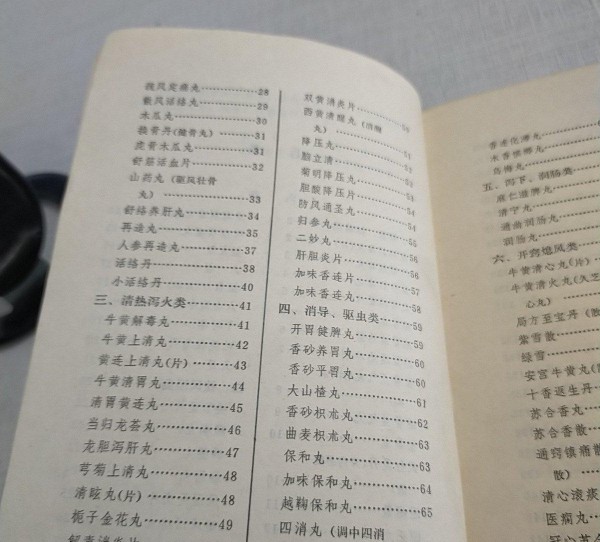 疏风定痛丸……28
散风活络丸……29
木瓜丸……30
健骨丸)……31
虎骨木瓜丸……31
舒筋活血片……32
山药丸(驱风壮骨
丸)……33
舒络养肝丸……34
再造丸……35
人参再造丸……37
活络丹……38
小活络丹……40
三、清热泻火类……41
牛黄解毒丸……41
牛黄上清丸……42
黄连上清丸(片)……43
牛黄清胃丸……44
清胃黄连丸……45
当归龙荟丸……46
龙胆泻肝丸……47
芎菊上清丸……48
清眩丸(片)……48
栀子金花丸……49
双黄消炎片……50
西黄清醒丸(清咽
丸)……51
降压丸……51
脑立清……52
菊明降压丸……53
胆酸降压片……54
防风通圣丸……54
归参丸……55
二妙丸……56
肝胆炎片……56
加味香连片……57
加味香连丸……58
四、消导、驱虫类……59
开胃健脾丸……59
香砂养胃丸……60
香砂平胃丸……60
大山楂丸……61
香砂枳朮丸……62
曲麦枳朮丸……63
保和丸……63
加味保和丸……64
越鞠保和丸……65
四消丸(调中四消
香连化滞丸
木香槟榔丸
乌梅丸
五、泻下、润肠类
麻仁滋脾丸
清宁丸
通幽润肠丸
润肠丸
六、开窍熄风类
牛黄清心丸(片)
牛黄清火丸
心丸)
局方至宝丹(散
紫雪散
绿雪
安宫牛黄丸
十香返生丹
苏合香丸
苏合香散
通窍镇痛散
散)
清心滚痰
医痫丸
冠心苏合